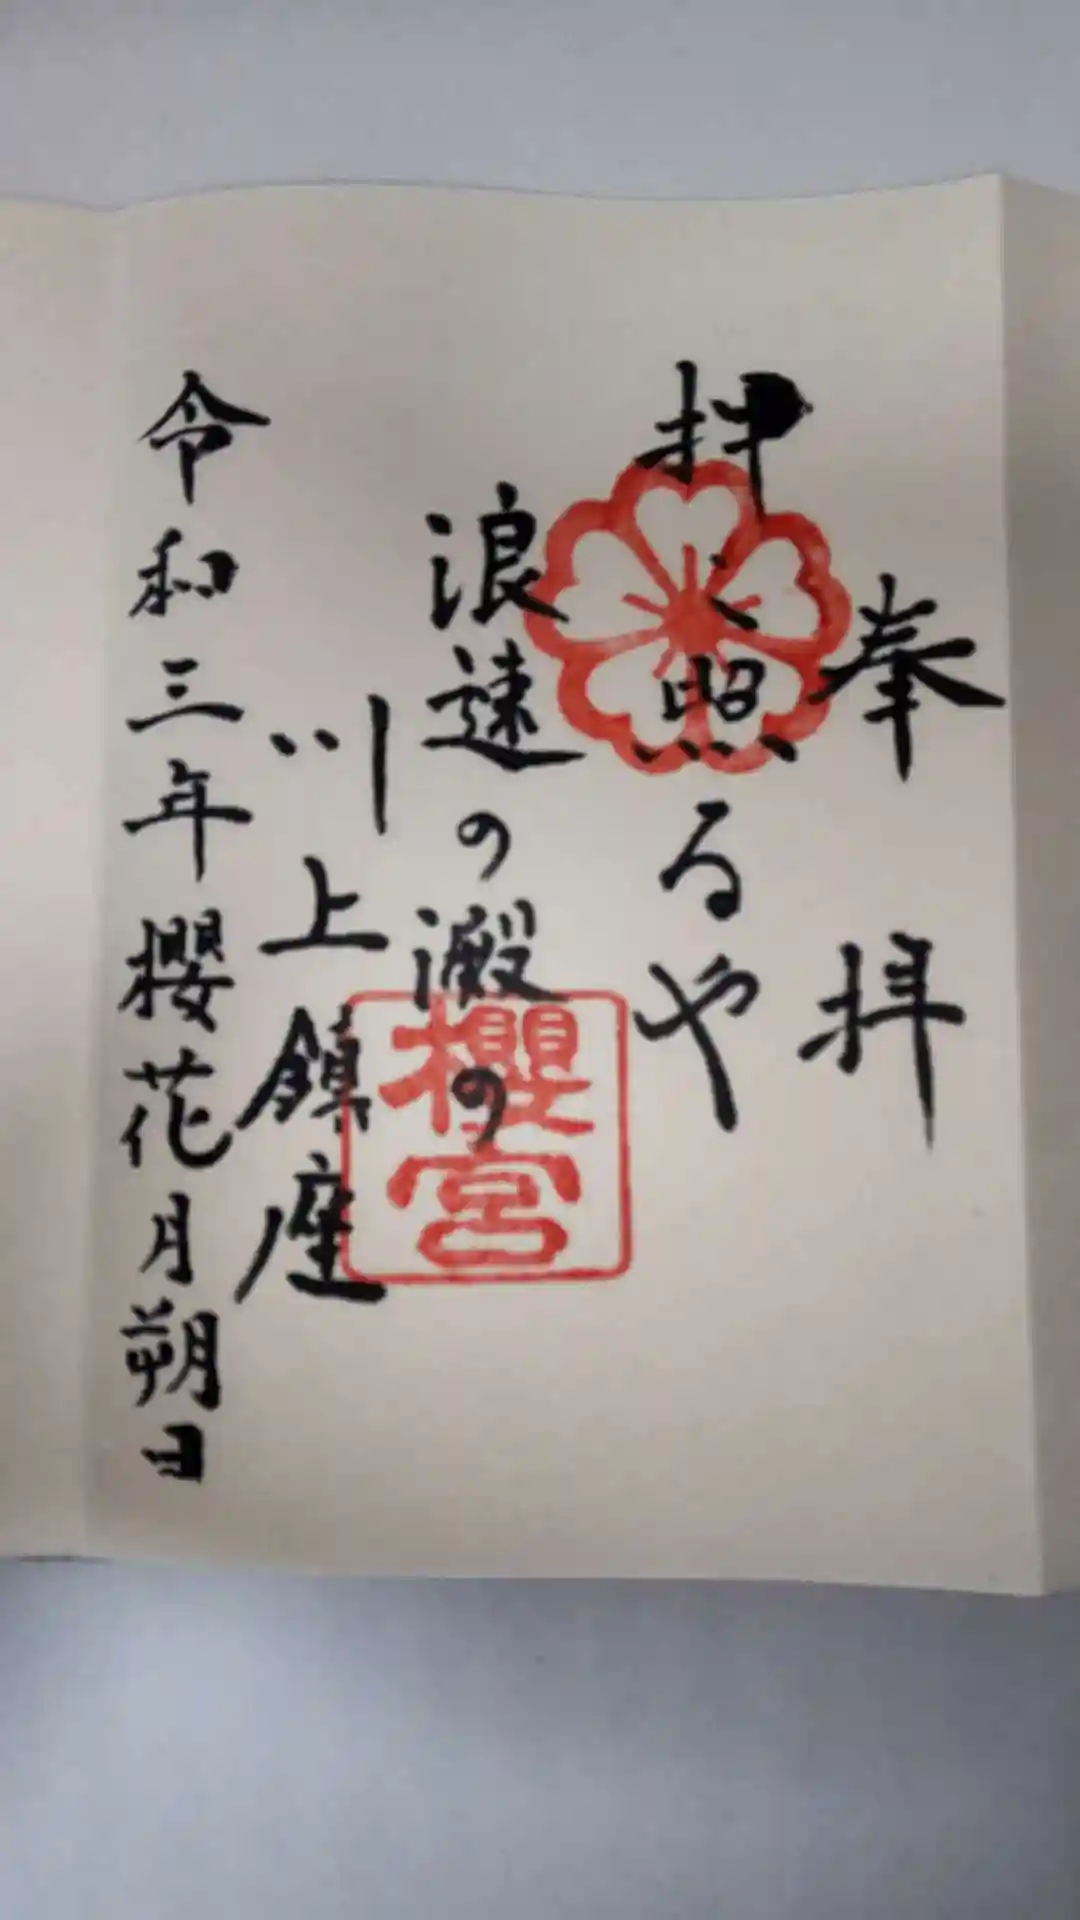 奉拝
照るや
浪速の澱の
川上鎮座
令和三年櫻花月朔日
櫻宮